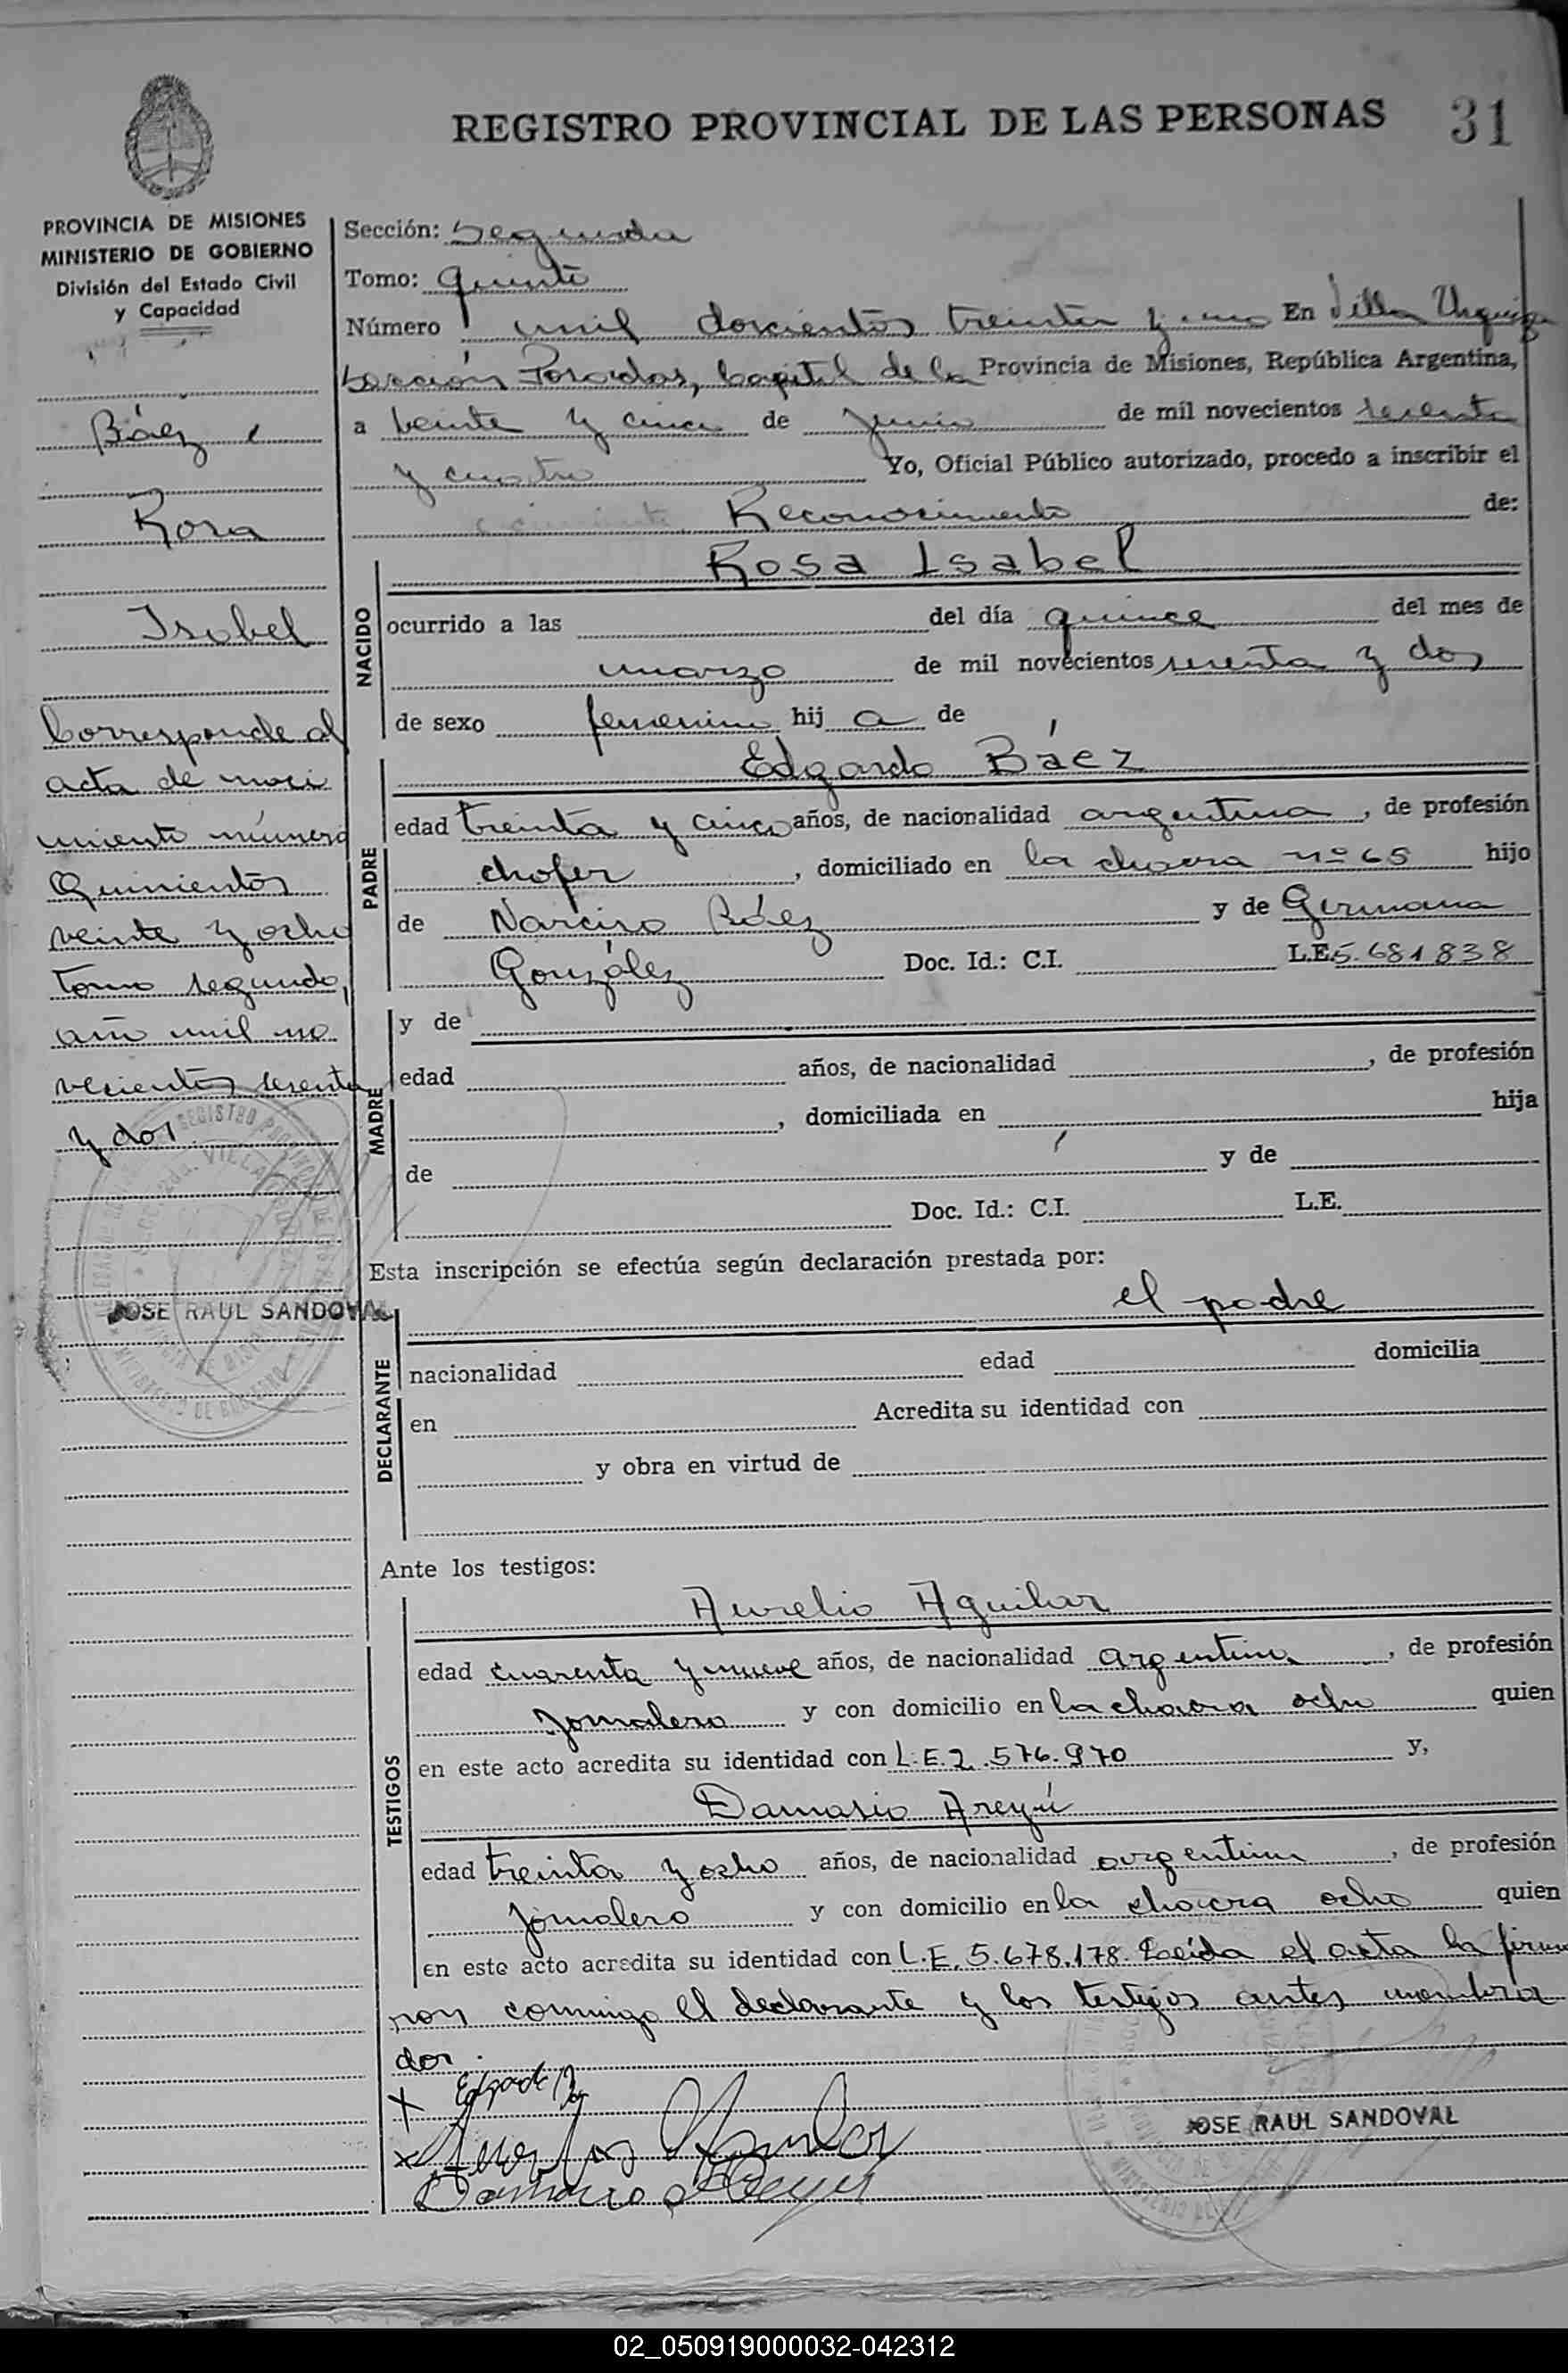 REGISTRO PROVINCIAL DE LAS PERSONAS 31
PROVINCIA DE MISIONES
MINISTERIO DE GOBIERNO
División del Estado Civil
y Capacidad
Báez
Rosa
Isabel
Corresponde al
acta de naci
miento número
Quinientos
veinte y ocho
tomo segundo,
año mil no
vecientos sesenta
y dos
JOSE RAUL SANDOVAL
Sección: Segunda
Tomo: quinto
Número mil doscientos treinta y uno En Villa Urquiza
Sección Posadas, Capital de la Provincia de Misiones, República Argentina,
a veinte y cinco de junio de mil novecientos sesenta
y cuatro Yo, Oficial Público autorizado, procedo a inscribir el
Reconocimiento de:
NACIDO
Rosa Isabel
ocurrido a las del día quince del mes de
marzo de mil novecientos sesenta y dos
de sexo femenino hij a de
PADRE
Edgardo Báez
edad treinta y cinco años, de nacionalidad argentina, de profesión
chofer, domiciliado en la chacra nº 65 hijo
de Narciso Báez y de Germana
González Doc. Id.: C.I. L.E. 5.681838
MADRE
y de
edad años, de nacionalidad , de profesión
, domiciliada en hija
de y de
Doc. Id.: C.I. L.E.
Esta inscripción se efectúa según declaración prestada por:
DECLARANTE
el padre
nacionalidad edad domicilia
en Acredita su identidad con
y obra en virtud de
Ante los testigos:
TESTIGOS
Aurelio Aguilar
edad cuarenta y nueve años, de nacionalidad argentina, de profesión
jornalero y con domicilio en la chacra ocho quien
en este acto acredita su identidad con L.E. 2.576.970 y,
Damasio Areyú
edad treinta y ocho años, de nacionalidad argentina, de profesión
jornalero y con domicilio en la chacra ocho quien
en este acto acredita su identidad con L.E. 5.678.178. Leída el acta la firma
ron conmigo el declarante y los testigos antes nombra
dos.
JOSE RAUL SANDOVAL
02_050919000032-042312